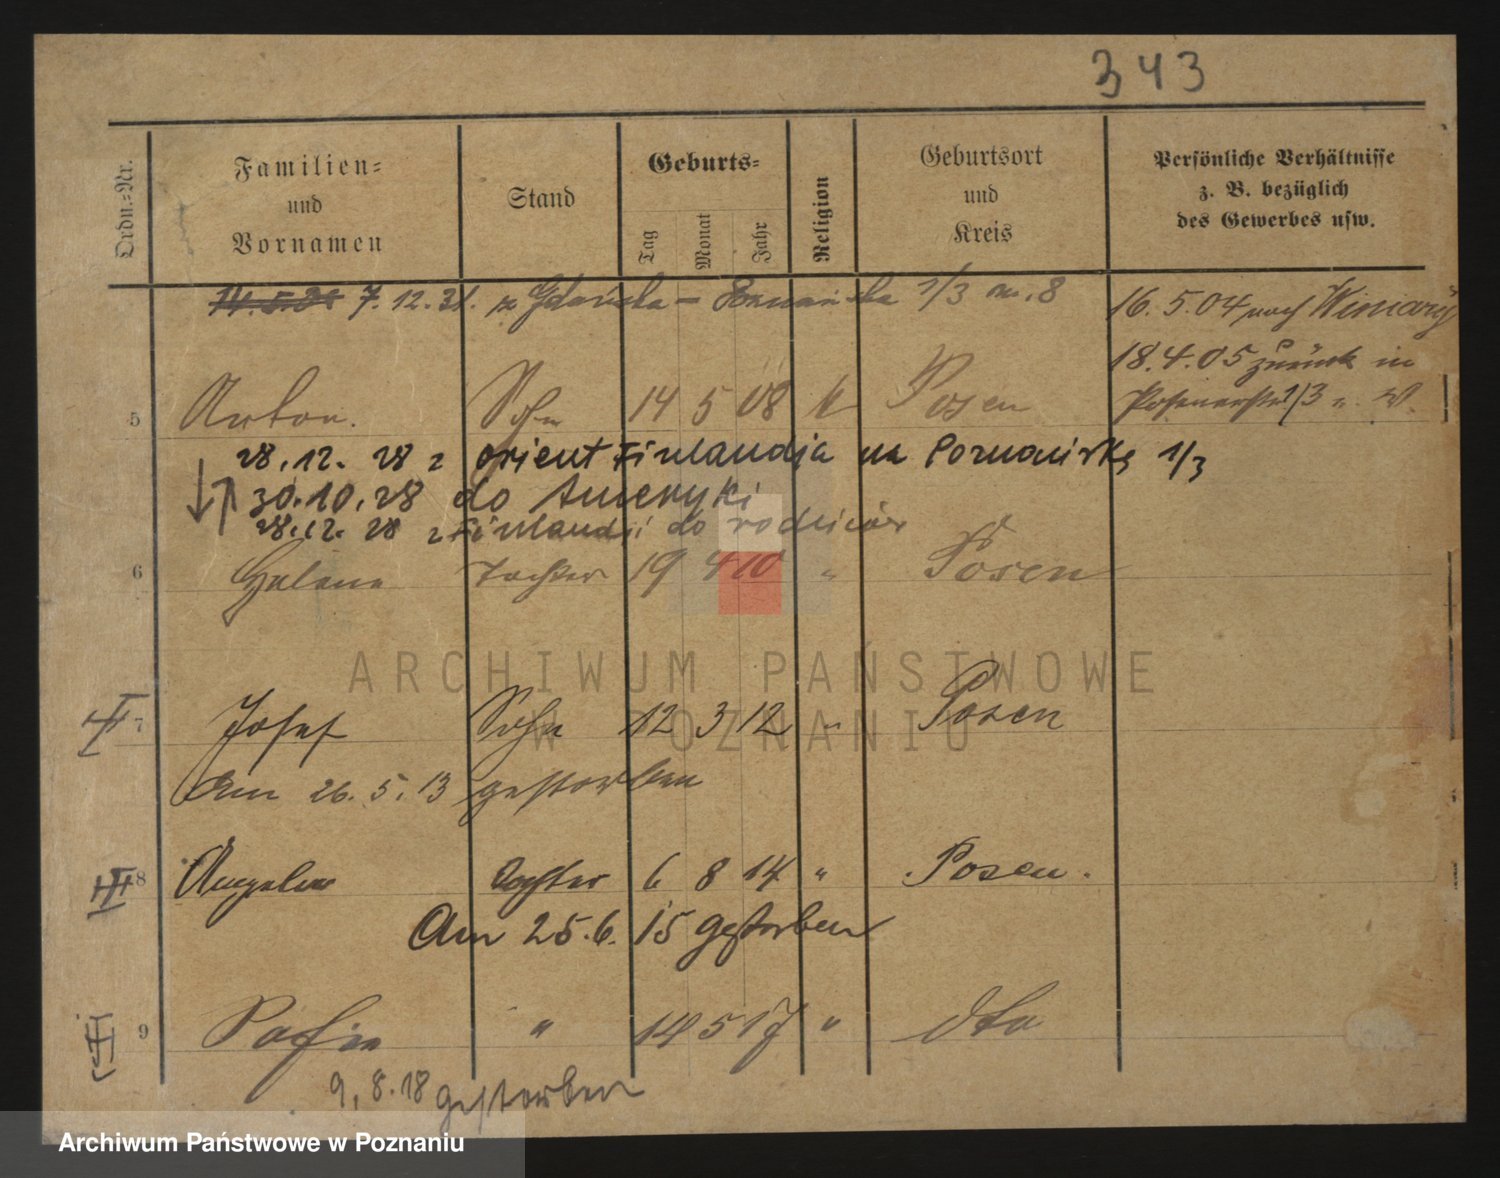 343
Ordn.-Nr.
Familien- und Vornamen
Stand
Geburts-
Tag
Monat
Jahr
Religion
Geburtsort und Kreis
Persönliche Verhältnisse z. B. bezüglich des Gewerbes usw.
14.5.31 7.12.31. z Gdańska – Poznańska 1/3 m. 8
16.5.04 nach Winiary
18.4.05 zurück in
Posenerstr 1/3
5 Anton. Sohn 14 5 08 k Posen
28.12.28 z orient Finlandja na Poznańską 1/3
30.10.28 do Ameryki
28.12.28 z Finlandji do rodziców
6 Helene Tochter 19 4 10 " Posen
7 Josef Sohn 12 3 12 " Posen
Am 26.5.13 gestorben
8 Angela Tochter 6 8 14 " Posen.
Am 25.6.15 gestorben
9 " 14 5 17 " dto
9.8.18 gestorben
ARCHIWUM PAŃSTWOWE
W POZNANIU
Archiwum Państwowe w Poznaniu